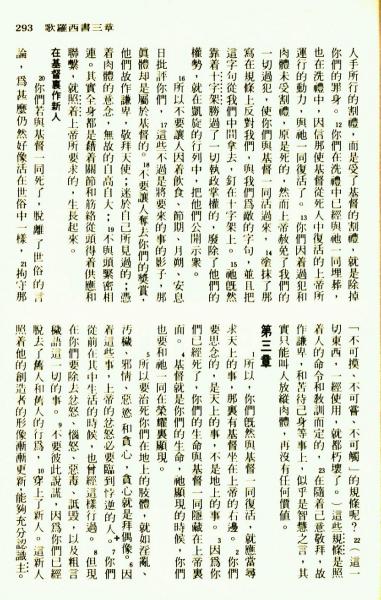 歌羅西書三章 293
人手所行的割禮，而是受了基督的割禮，就是除掉
你們的罪身。12你們在洗禮中已經與祂一同埋葬，
也在洗禮中，因信那使基督從死人中復活的上帝所
運行的動力，與祂一同復活了。13你們因着過犯和
肉體未受割禮，原是死的，然而上帝赦免了我們的
一切過犯，使你們與基督一同活過來，14塗抹了那
寫在規條上反對我們，與我們爲敵的字句，並且把
這字句從我們中間拿去，釘在十字架上。15祂旣然
靠着十字架勝過了一切執政掌權的，廢除了他們的
權勢，就在凱旋的行列中，把他們公開示衆。
16所以不要讓人因着飲食、節期、月朔、安息
日批評你們，17這些不過是將要來的事的影子，那
眞體却是屬於基督的。18不要讓人奪去你們的獎賞，
他們故作謙卑，敬拜天使；迷於自己所見過的；憑
着肉體的意念，無故的自高自大；19不與頭緊密相
連。其實全身都是藉着關節和筋絡從頭得着供應和
聯繫，就照着上帝所要求的，生長起來。
在基督裏作新人
20你們若與基督一同死了，脫離了世俗的言
論，爲甚麼仍然好像活在世俗中一樣，21拘守那
「不可摸、不可嘗、不可觸」的規條呢？22（這一
切東西，一經使用，就都朽壞了。）這些規條是照
着人的命令和教訓而定的，23在隨着己意敬拜，故
作謙卑，和苦待己身等事上，似乎是智慧之言，其
實只能叫人放縱肉體，再沒有任何價值。
第三章
1所以，你們旣然與基督一同復活，就應當尋
求天上的事，那裏有基督坐在上帝的右邊。2你們
要思念的，是天上的事，不是地上的事。3因爲你
們已經死了，你們的生命與基督一同隱藏在上帝裏
面。4基督就是你們的生命，祂顯現的時候，你們
也要和祂一同在榮耀裏顯現。
5所以要治死你們在地上的肢體，就如淫亂、
汚穢、邪情、惡慾和貪心，貪心就是拜偶像。6因
着這些事，上帝的忿怒必要臨到悖逆的人。7你們
從前在其中生活的時候，也曾經這樣行過。8但現
在你們要除去忿怒、惱怒、惡毒、詆毀，以及粗言
穢語這一切的事。9不要彼此說謊，因爲你們已經
脫去了舊人和舊人的行爲，10穿上了新人。這新人
照着他的創造者的形像漸漸更新，能夠充分認識主。